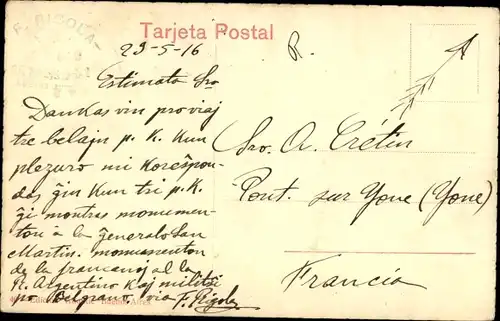 Tarjeta Postal
23-5-16
R.
Estimata Sro
Dankas vin pro viaj
tre belajn p. k. kun
plezuro mi korespon-
das ĝin kun tri p. K
ĝi montras monumen-
ton a la ĝeneralo San
Martin. monumenton
de la francanoj al la
R. Argentino kaj militsi
po Belgrano. via F. Rigola
Sro. A. Crétin
Pont sur Yone (Yone)
Francia
Buenos Aires